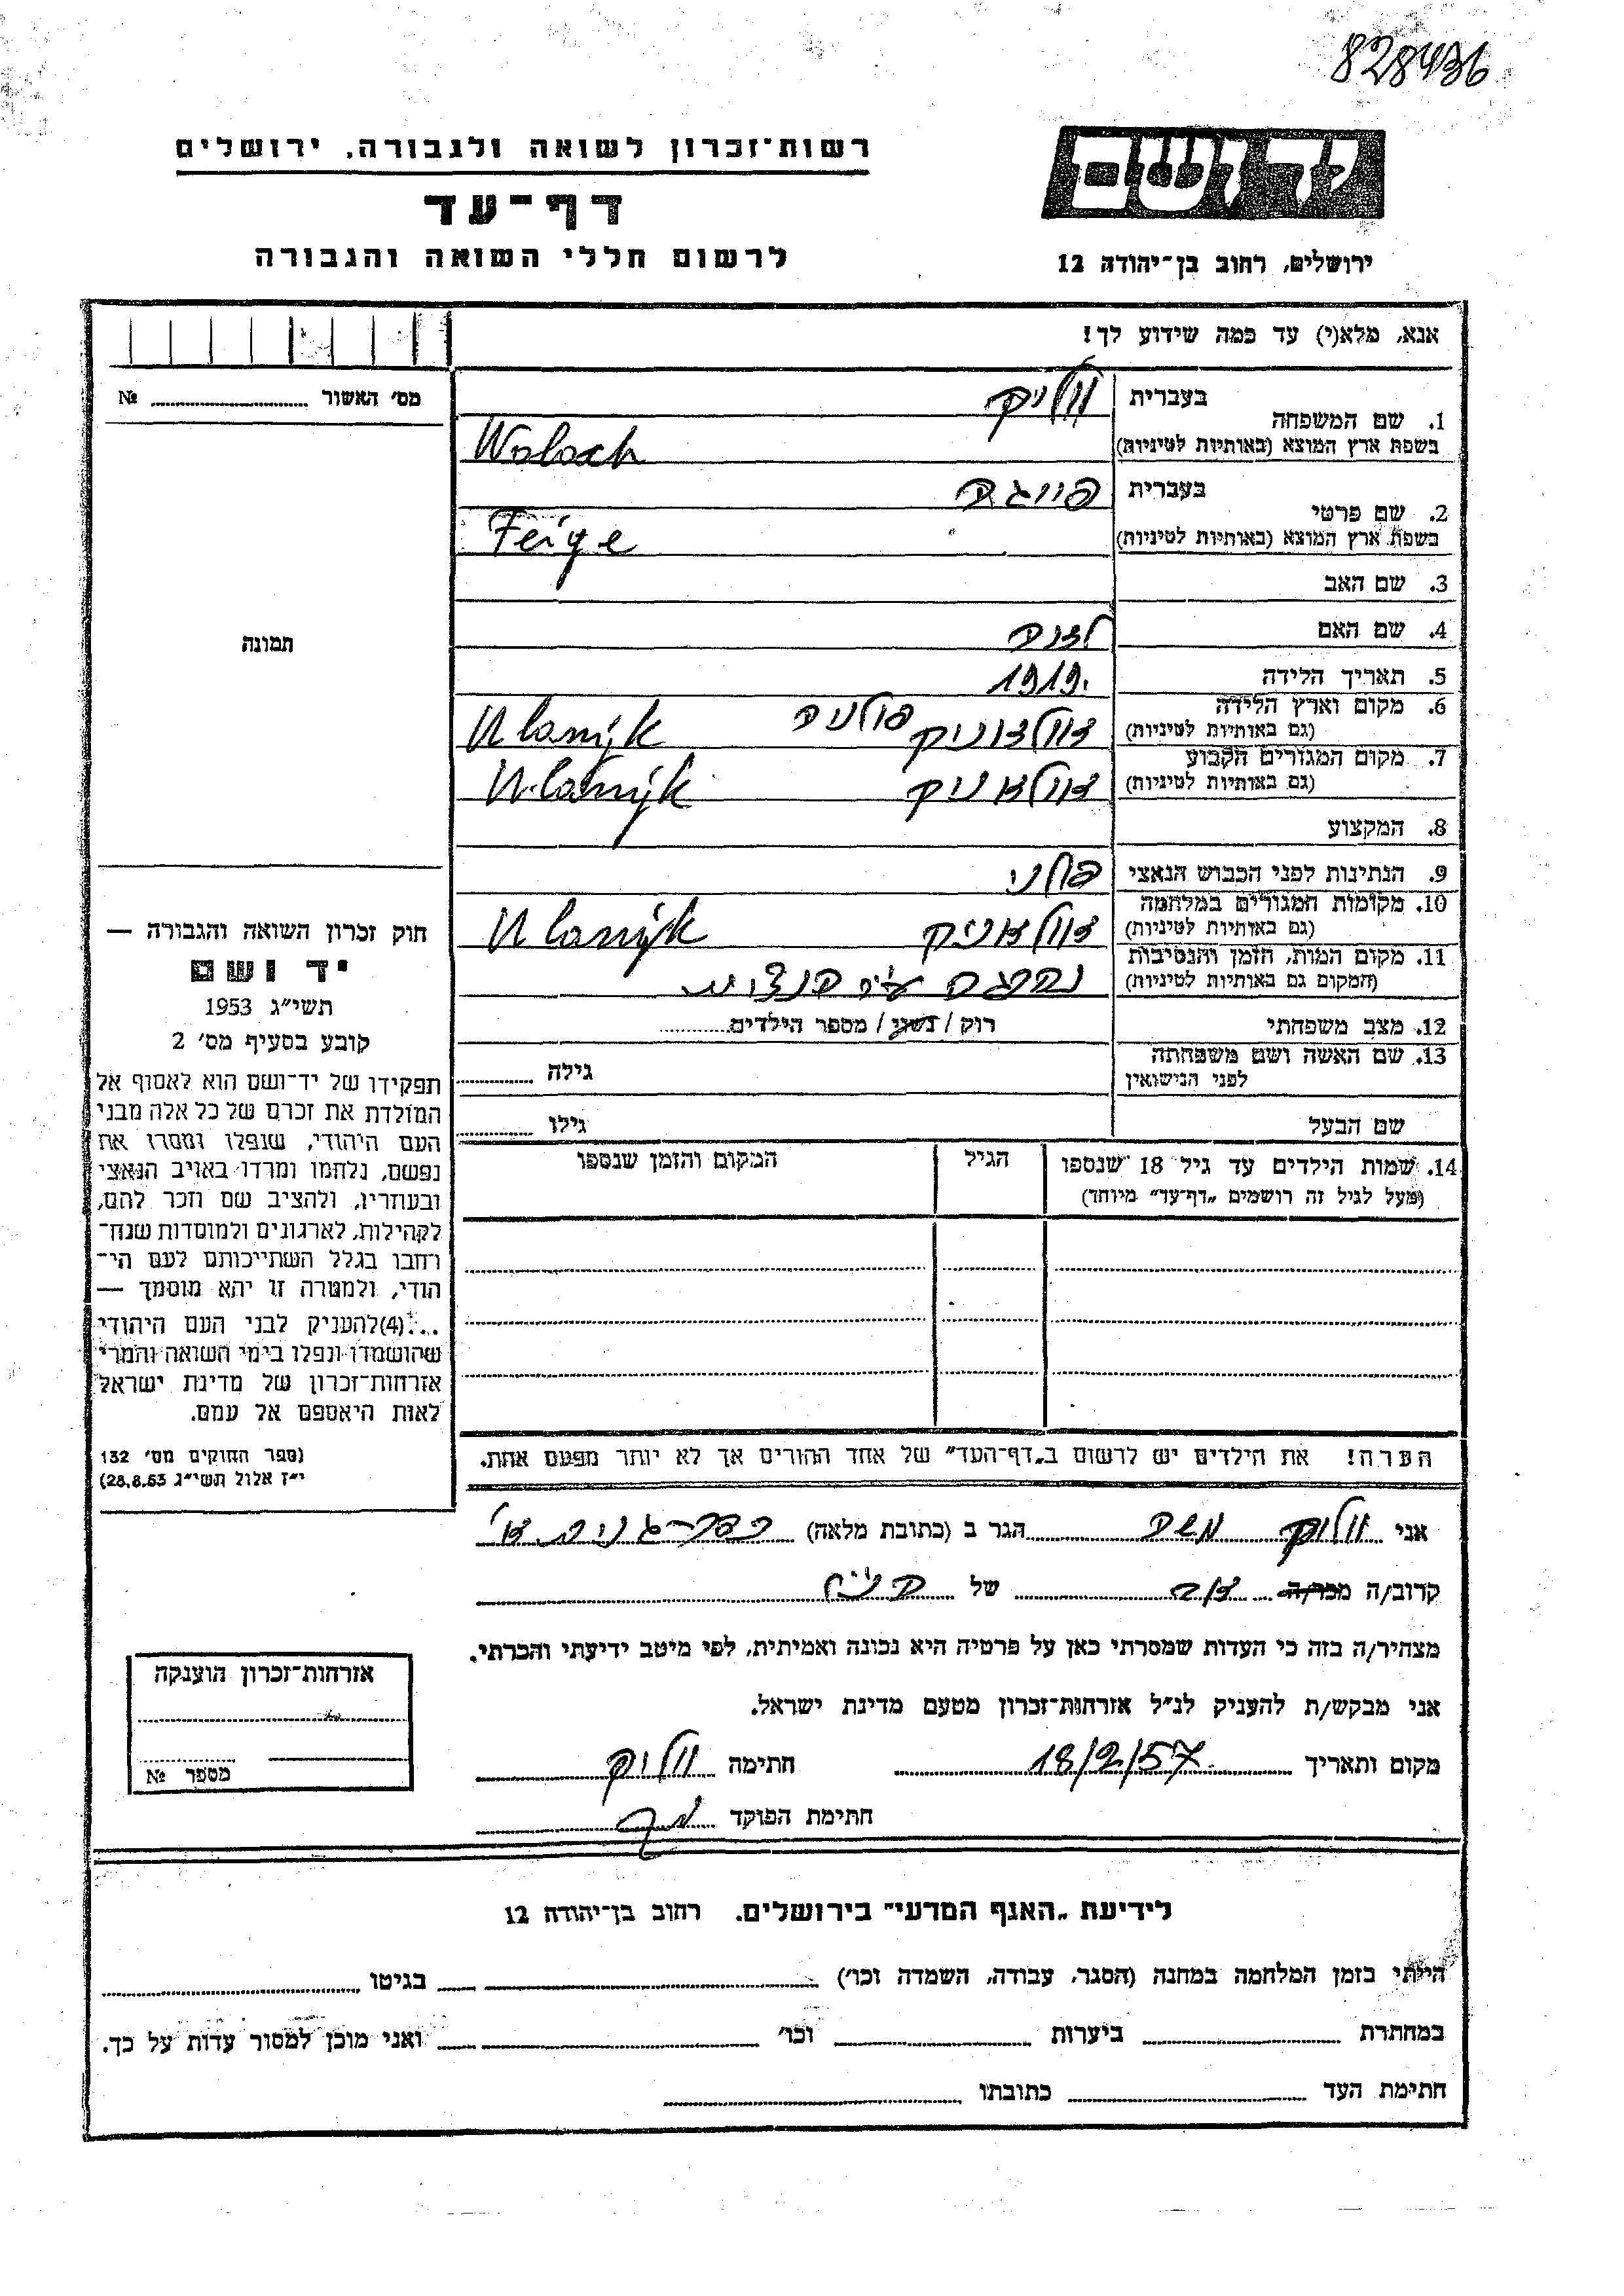 828436
רשות־זכרון לשואה ולגבורה, ירושלים
דף־עד
לרשום חללי השואה והגבורה
ידושם
ירושלים, רחוב בן־יהודה 12
אנא, מלא(י) עד כמה שידוע לך!
מס׳ האשור №
1. שם המשפחה
בעברית
בשפת ארץ המוצא (באותיות לטיניות)
Woloch
2. שם פרטי
בעברית פייגה
בשפת ארץ המוצא (באותיות לטיניות)
Feige
3. שם האב
4. שם האם
5. תאריך הלידה 1919.
6. מקום וארץ הלידה
(גם באותיות לטיניות) פולניה
7. מקום המגורים הקבוע
(גם באותיות לטיניות)
8. המקצוע
9. הנתינות לפני הכבוש הנאצי פולני
10. מקומות המגורים במלחמה
(גם באותיות לטיניות)
11. מקום המות, הזמן והנסיבות
(המקום גם באותיות לטיניות) נהרגה ע״י הנאצים
12. מצב משפחתי רוק / נשוי / מספר הילדים
13. שם האשה ושם משפחתה
לפני הנישואין גילה
שם הבעל גילו
14. שמות הילדים עד גיל 18 שנספו הגיל המקום והזמן שנספו
(מעל לגיל זה רושמים „דף־עד״ מיוחד)
הערה! את הילדים יש לרשום ב„דף־העד״ של אחד ההורים אך לא יותר מפעם אחת.
תמונה
חוק זכרון השואה והגבורה —
יד ושם
תשי״ג 1953
קובע בסעיף מס׳ 2
תפקידו של יד־ושם הוא לאסוף אל
המולדת את זכרם של כל אלה מבני
העם היהודי, שנפלו ומסרו את
נפשם, נלחמו ומרדו באויב הנאצי
ובעוזריו, ולהציב שם וזכר להם,
לקהילות, לארגונים ולמוסדות שנח־
רבו בגלל השתייכותם לעם הי־
הודי, ולמטרה זו יהא מוסמך —
...(4)להעניק לבני העם היהודי
שהושמדו ונפלו בימי השואה והמרי
אזרחות־זכרון של מדינת ישראל
לאות היאספם אל עמם.
(ספר החוקים מס׳ 132
י״ז אלול תשי״ג 28.8.53)
אני וולוך משה הגר ב (כתובת מלאה)
קרוב/ה מכר/ה של
מצהיר/ה בזה כי העדות שמסרתי כאן על פרטיה היא נכונה ואמיתית, לפי מיטב ידיעתי והכרתי.
אני מבקש/ת להעניק לנ״ל אזרחות־זכרון מטעם מדינת ישראל.
מקום ותאריך 18/2/57 חתימה וולוך
חתימת הפוקד
אזרחות־זכרון הוענקה
מספר №
לידיעת „האגף המדעי״ בירושלים, רחוב בן־יהודה 12
הייתי בזמן המלחמה במחנה (הסגר, עבודה, השמדה וכו׳) בגיטו
במחתרת ביערות וכו׳ ואני מוכן למסור עדות על כך.
חתימת העד כתובתו